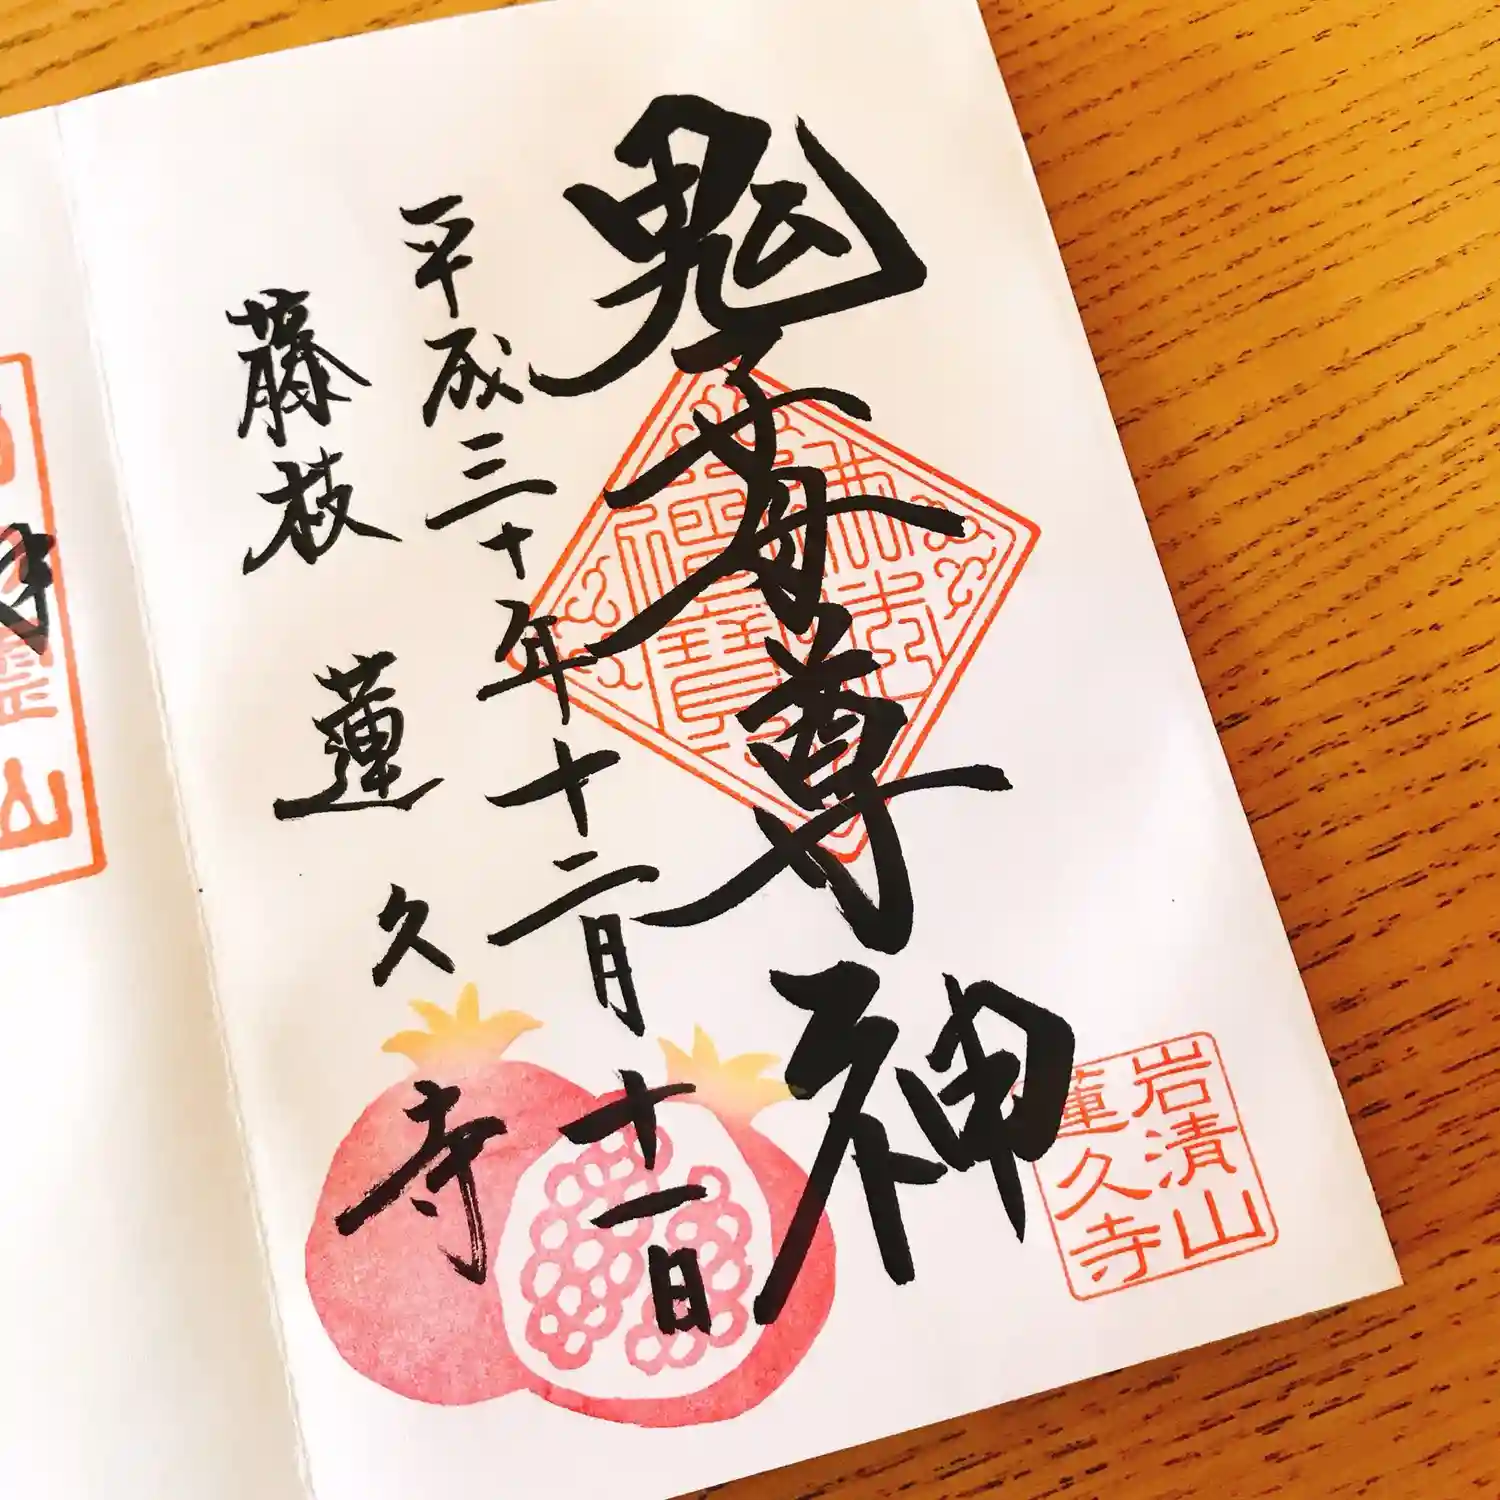 鬼子母尊神
平成三十年十二月十一日
藤枝 蓮久寺
岩清山
蓮久寺
山